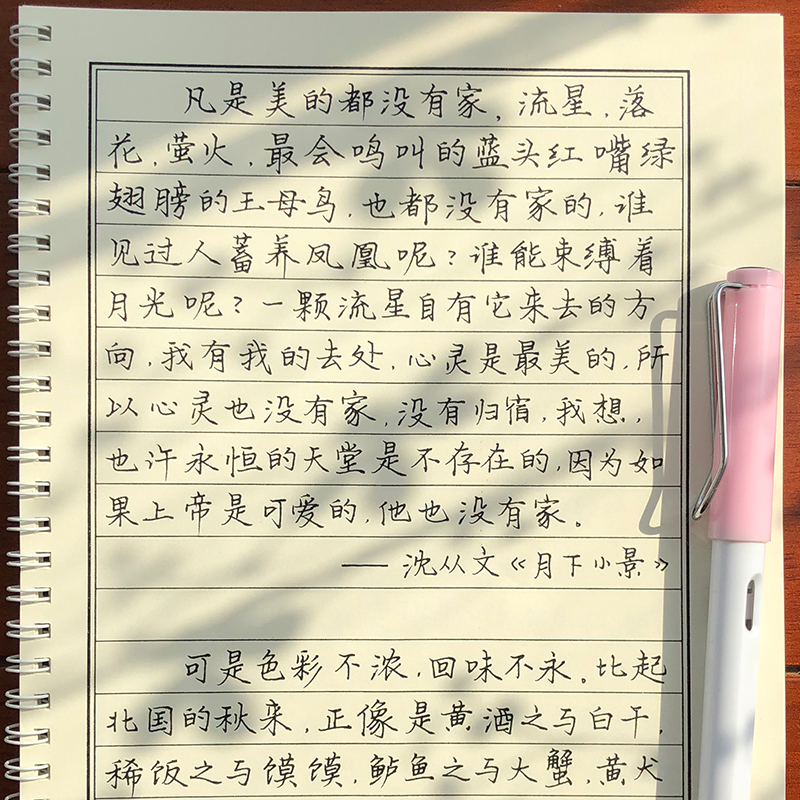 凡是美的都没有家，流星，落
花，萤火，最会鸣叫的蓝头红嘴绿
翅膀的王母鸟，也都没有家的，谁
见过人蓄养凤凰呢？谁能束缚着
月光呢？一颗流星自有它来去的方
向，我有我的去处，心灵是最美的，所
以心灵也没有家，没有归宿，我想，
也许永恒的天堂是不存在的，因为如
果上帝是可爱的，他也没有家。
——沈从文《月下小景》
可是色彩不浓，回味不永。比起
北国的秋来，正像是黄酒之与白干，
稀饭之与馍馍，鲈鱼之与大蟹，黄犬